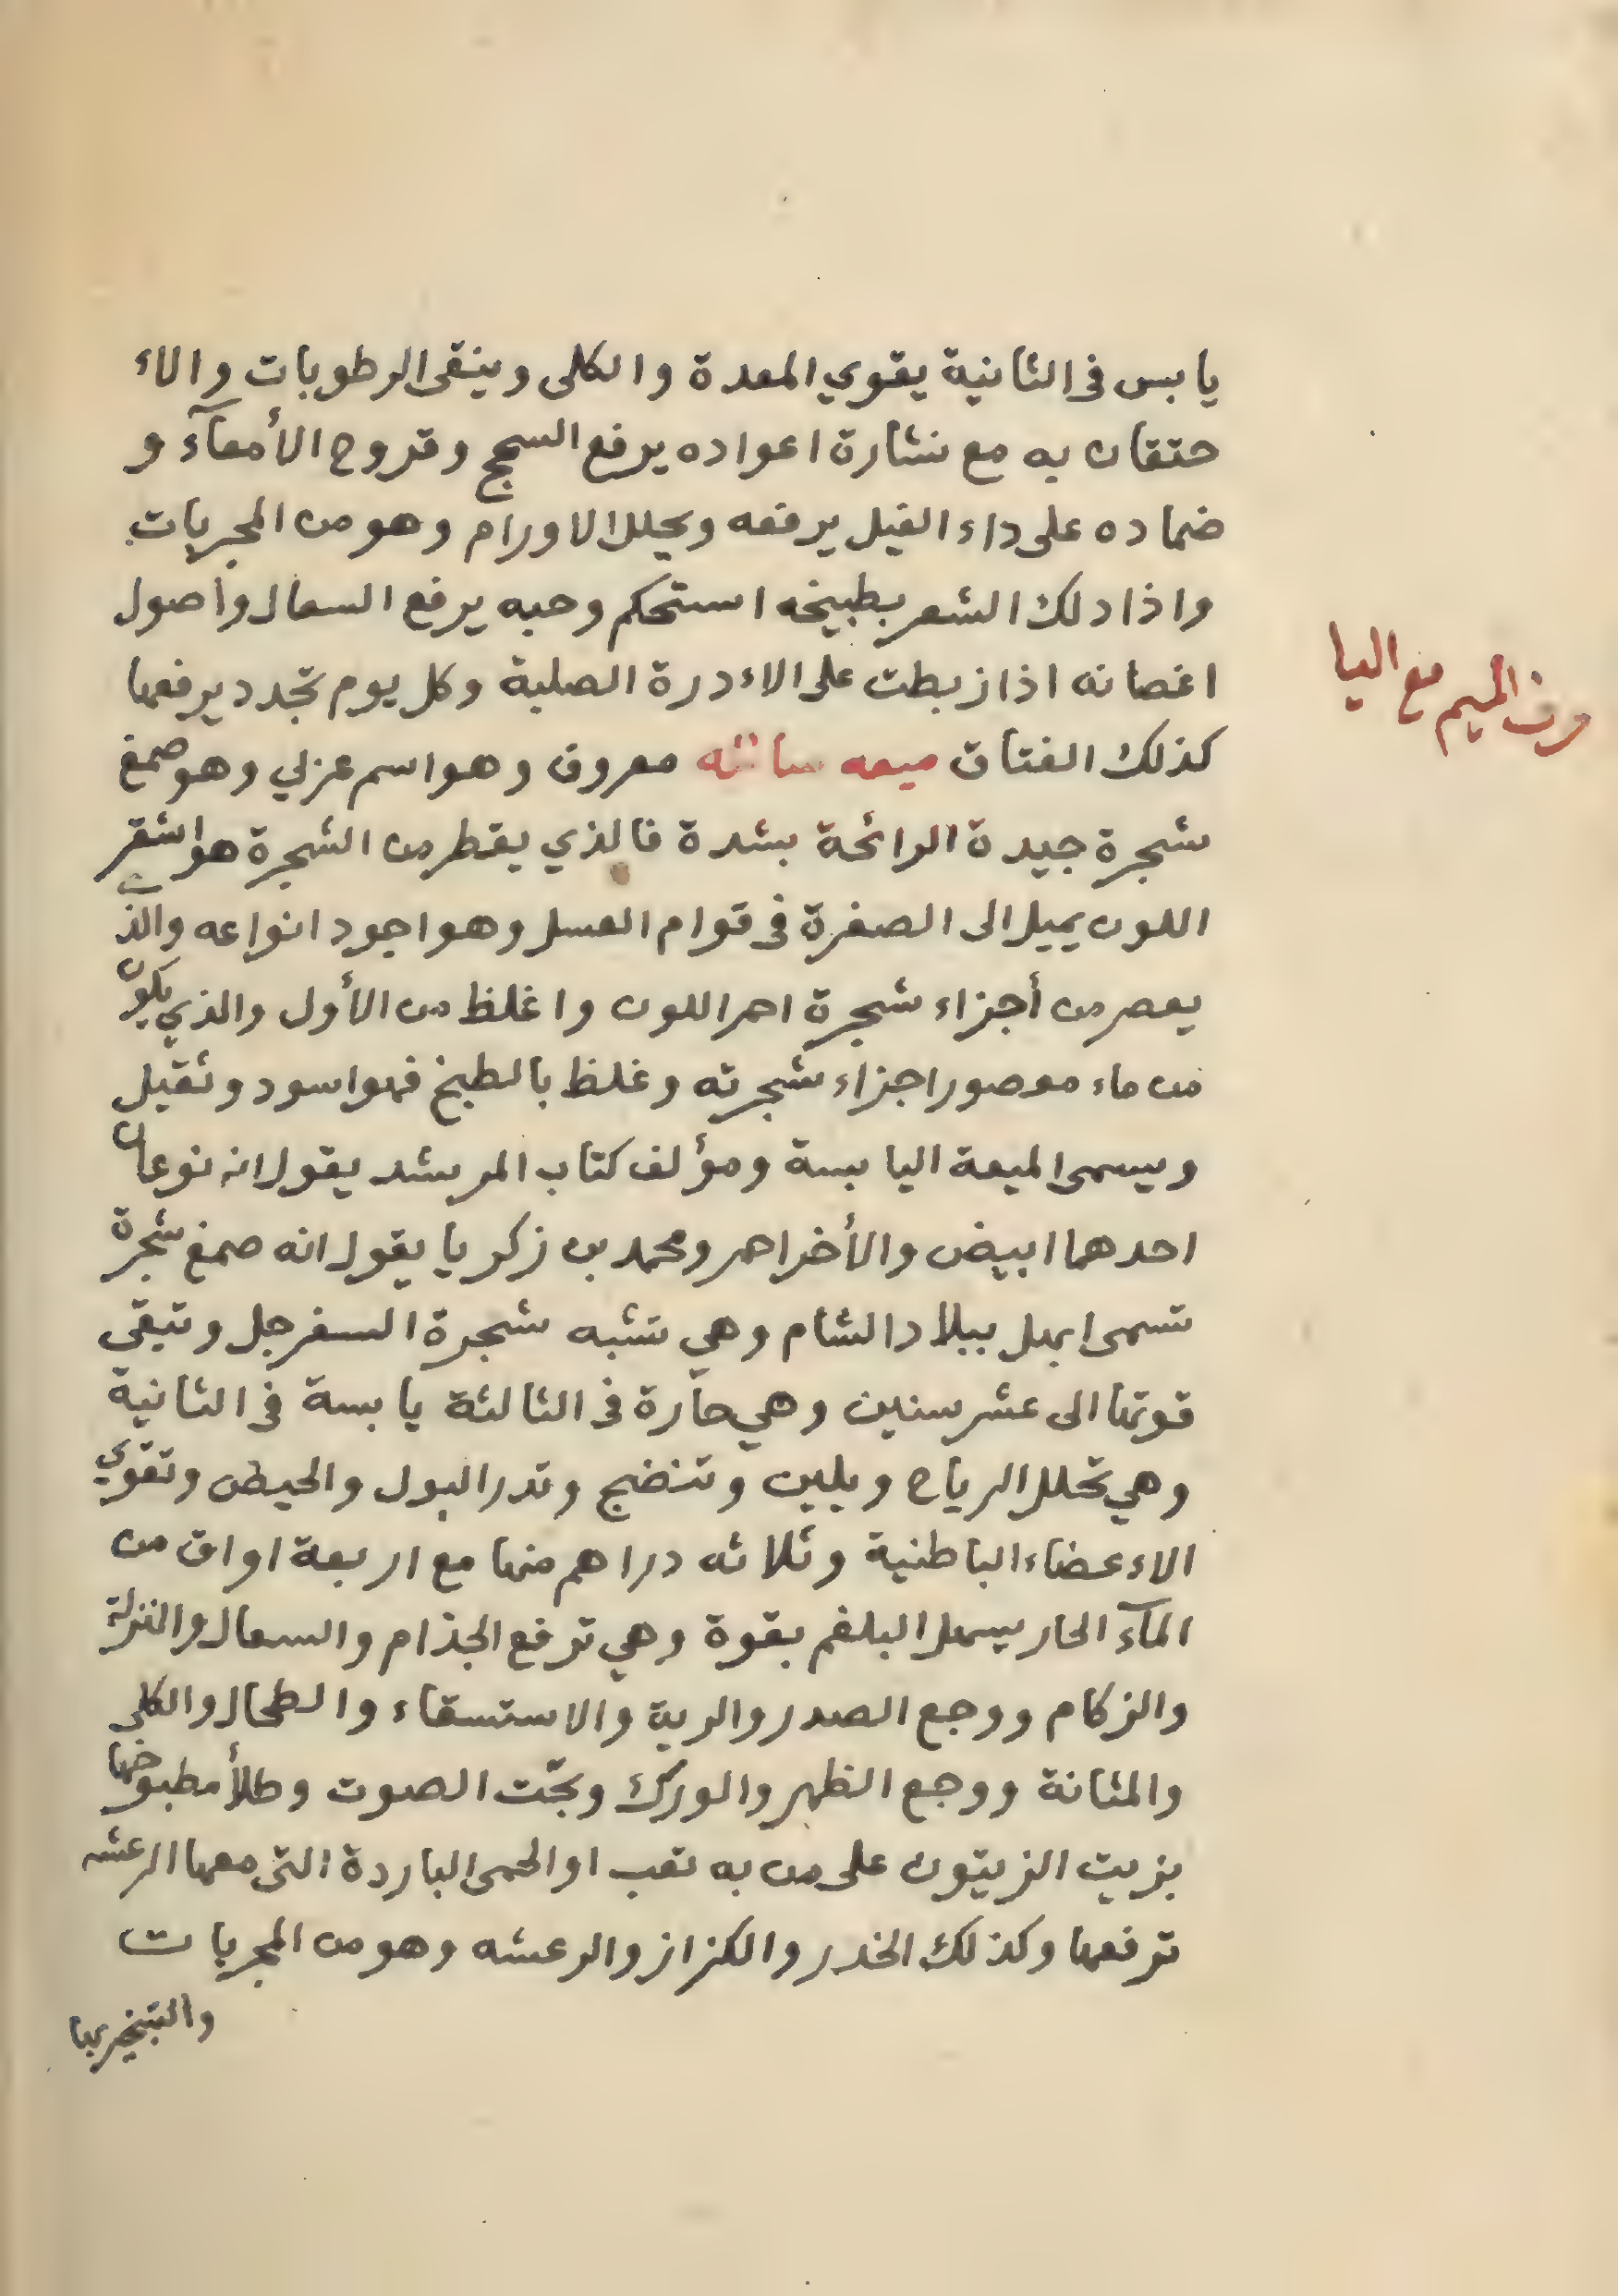 يابس فى الثانية يقوي المعدة والكلى وينقى الرطوبات والاء
حتقان به مع نشارة اعواده يرفع السحج وقروح الأمعآء و
ضماده على داء الفيل يرفعه ويحلل الاورام وهو من المجربات
واذا دلك الشعر بطبيخه استحكم وحبه يرفع السعال واصول
اغصانه اذا زبطت على الاءدرة الصلبة وكل يوم تجدد يرفعها
كذلك الفتاق ميعه سائله معروف وهو اسم عربي وهو صمغ
حرف الميم مع اليا
شجرة جيدة الرائحة بشدة فالذي يقطر من الشجرة هو اشقر
اللون يميل الى الصفرة فى قوام العسل وهو اجود انواعه والذي
يعصر من أجزاء شجرة احمر اللون واغلظ من الأول والذي يكون
من ماء معصور اجزاء شجرته وغلظ بالطبخ فهو اسود وثقيل
ويسمى الميعة اليابسة ومؤلف كتاب المرشد يقول انه نوعان
احدهما ابيض والأخر احمر ومحمد بن زكريا يقول انه صمغ شجرة
تسمى ابهل ببلاد الشام وهي تشبه شجرة السفرجل وتبقى
قوتها الى عشر سنين وهي حآرة فى الثالثة يابسة فى الثانية
وهي تحلل الرياح ويلين وتنضج وتدر البول والحيض وتقوي
الاءعضاء الباطنية وثلاثه دراهم منها مع اربعة اواق من
المآء الحار يسهل البلغم بقوة وهي ترفع الجذام والسعال والنزلة
والزكام ووجع الصدر والرية والاستسقاء والطحال والكلى
والمثانة ووجع الظهر والورك وبحّت الصوت وطلأ مطبوخها
بزيت الزيتون على من به تعب او الحمى الباردة التى معها الرعشه
ترفعها وكذلك الخدر والكزاز والرعشه وهو من المجربات
والتبخير بها